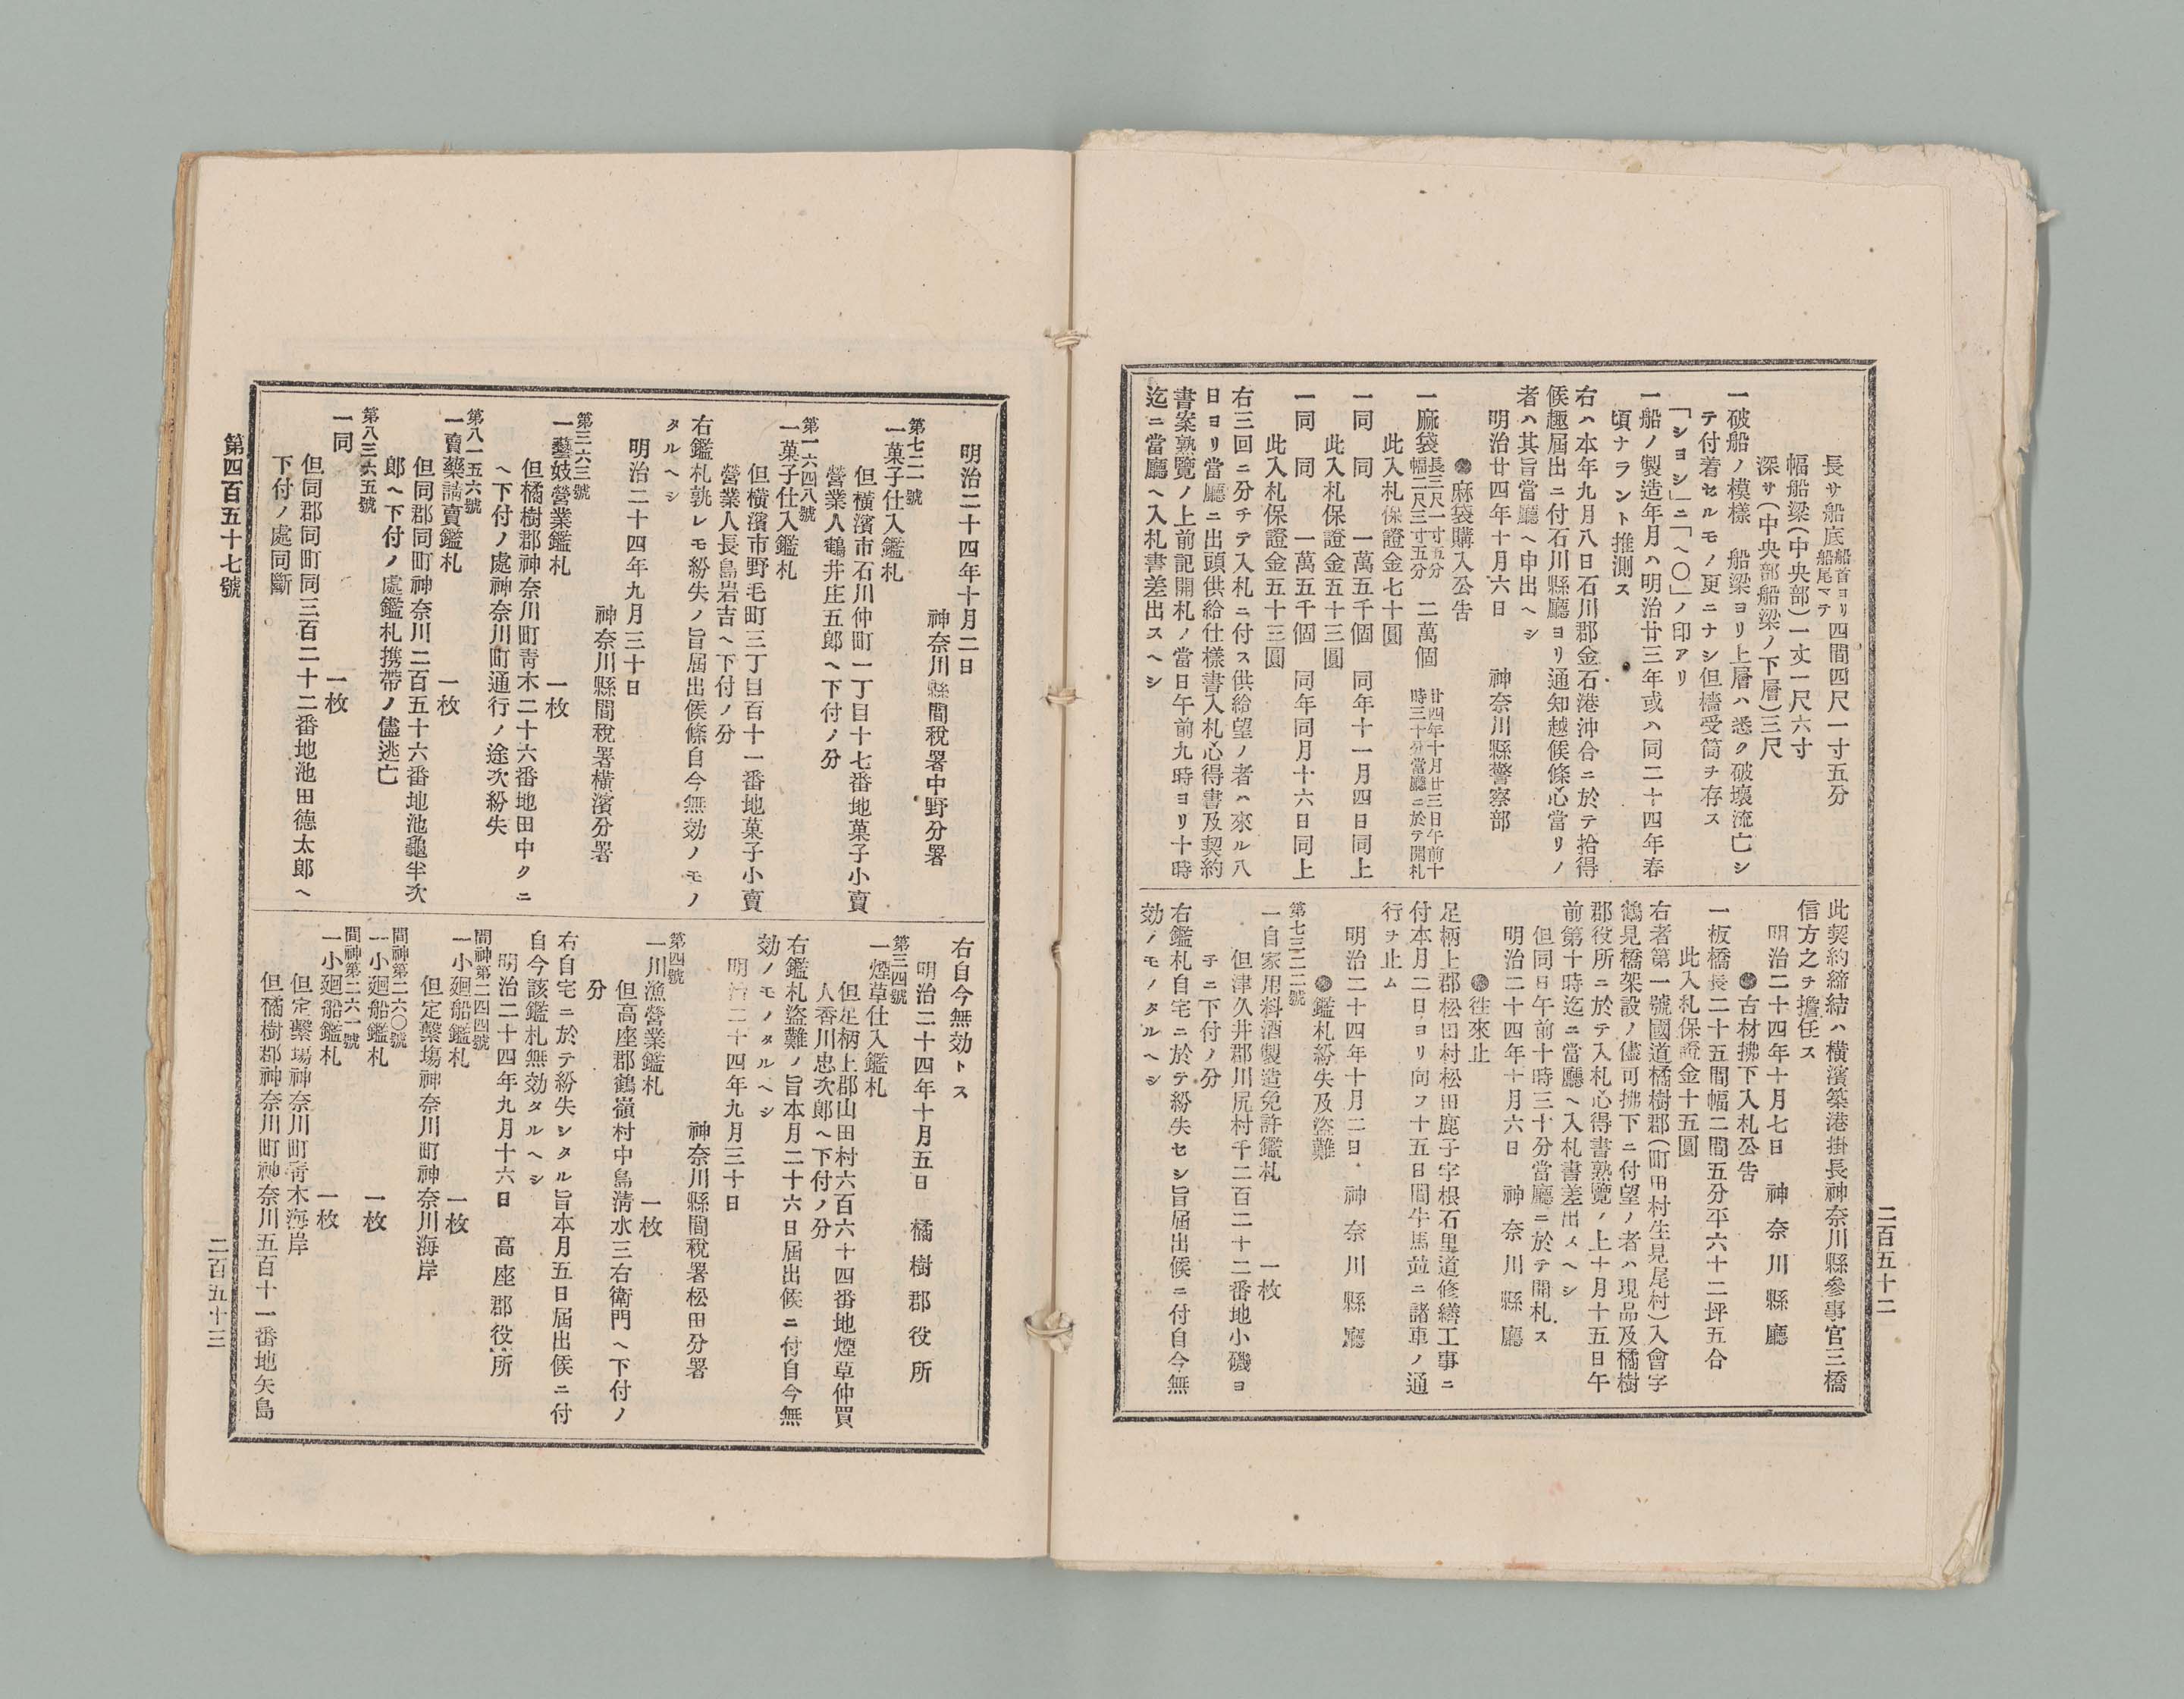 二百五十二
長サ船底船首ヨリ船尾マテ四間四尺一寸五分
幅船梁(中央部)一丈一尺六寸
深サ(中央部船梁ノ下層)三尺
一破船ノ模樣 船梁ヨリ上層ハ悉ク破壞流亡シ
テ付着セルモノ更ニナシ但檣受筒ヲ存ス
「ショシ」ニ「へ〇」ノ印アリ
一船ノ製造年月ハ明治廿三年或ハ同二十四年春
頃ナラント推測ス
右ハ本年九月八日石川郡金石港沖合ニ於テ拾得
候趣屆出ニ付石川縣廳ヨリ通知越候條心當リノ
者ハ其旨當廳ヘ申出ヘシ
明治廿四年十月六日 神奈川縣警察部
◉麻袋購入公告
一麻袋長三尺一寸五分幅二尺三寸五分 二萬個 廿四年十月廿三日午前十時三十分當廳ニ於テ開札
此入札保證金七十圓
一同 同 一萬五千個 同年十一月四日同上
此入札保證金五十三圓
一同 同 一萬五千個 同年同月十六日同上
此入札保證金五十三圓
右三回ニ分チテ入札ニ付ス供給望ノ者ハ來ル八
日ヨリ當廳ニ出頭供給仕樣書入札心得書及契約
書案熟覽ノ上前記開札ノ當日午前九時ヨリ十時
迄ニ當廳ヘ入札書差出スヘシ
此契約締結ハ橫濱築港掛長神奈川縣參事官三橋
信方之ヲ擔任ス
明治二十四年十月七日 神奈川縣廳
◉古材拂下入札公告
一板橋長二十五間幅二間五分平六十二坪五合
此入札保證金十五圓
右者第一號國道橘樹郡(町田村生見尾村)入會字
鶴見橋架設ノ儘可拂下ニ付望ノ者ハ現品及橘樹
郡役所ニ於テ入札心得書熟覽ノ上十月十五日午
前第十時迄ニ當廳ヘ入札書差出スヘシ
但同日午前十時三十分當廳ニ於テ開札ス
明治二十四年十月六日 神奈川縣廳
◉徃來止
足柄上郡松田村松田鹿子字根石里道修繕工事ニ
付本月二日ヨリ向フ十五日間牛馬並ニ諸車ノ通
行ヲ止ム
明治二十四年十月二日 神奈川縣廳
◉鑑札紛失及盜難
第七三二二號
一自家用料酒製造免許鑑札 一枚
但津久井郡川尻村千二百二十二番地小磯ヨ
チニ下付ノ分
右鑑札自宅ニ於テ紛失セシ旨屆出候ニ付自今無
効ノモノタルヘシ
明治二十四年十月二日
神奈川縣間稅署中野分署
第七二一號
一菓子仕入鑑札
但橫濱市石川仲町一丁目十七番地菓子小賣
營業人鶴井庄五郎ヘ下付ノ分
第一六四八號
一菓子仕入鑑札
但橫濱市野毛町三丁目百十一番地菓子小賣
營業人長島岩吉ヘ下付ノ分
右鑑札孰レモ紛失ノ旨屆出候條自今無効ノモノ
タルヘシ
明治二十四年九月三十日
神奈川縣間稅署橫濱分署
第三六三號
一藝妓營業鑑札 一枚
但橘樹郡神奈川町靑木二十六番地田中クニ
ヘ下付ノ處神奈川町通行ノ途次紛失
第八一五六號
一賣藥請賣鑑札 一枚
但同郡同町神奈川二百五十六番地池龜半次
郎ヘ下付ノ處鑑札携帶ノ儘逃亡
第八三六五號
一同 一枚
但同郡同町同三百二十二番地池田德太郎ヘ
下付ノ處同斷
右自今無効トス
明治二十四年十月五日 橘樹郡役所
第三四號
一煙草仕入鑑札
但足柄上郡山田村六百六十四番地煙草仲買
人香川忠次郎ヘ下付ノ分
右鑑札盜難ノ旨本月二十六日屆出候ニ付自今無
効ノモノタルヘシ
明治二十四年九月三十日
神奈川縣間稅署松田分署
第四號
一川漁營業鑑札 一枚
但高座郡鶴嶺村中島淸水三右衛門ヘ下付ノ
分
右自宅ニ於テ紛失シタル旨本月五日屆出候ニ付
自今該鑑札無効タルヘシ
明治二十四年九月十六日 高座郡役所
間神第二四四號
一小廻船鑑札 一枚
但定繫塲神奈川町神奈川海岸
間神第二六〇號
一小廻船鑑札 一枚
間神第二六一號
一小廻船鑑札 一枚
但定繫塲神奈川町靑木海岸
但橘樹郡神奈川町神奈川五百十一番地矢島
第四百五十七號
二百五十三